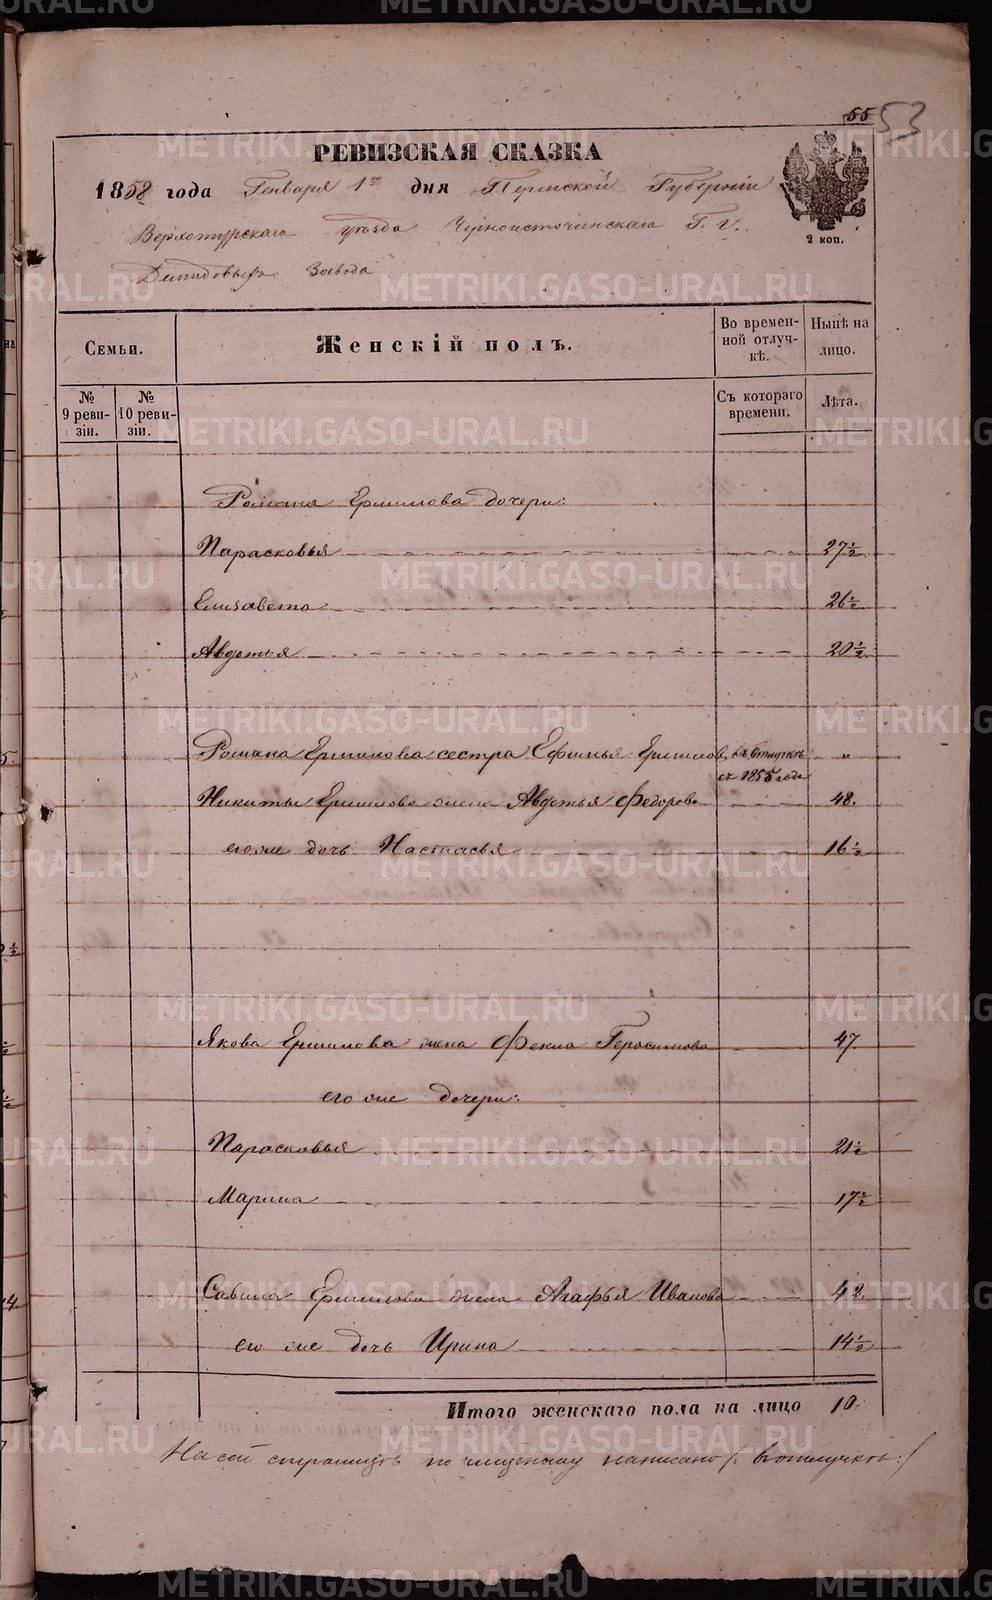 55 53
РЕВИЗСКАЯ СКАЗКА
1858 года Генваря 1го дня Пермской Губерніи
Верхотурскаго уѣзда Черноисточинскаго Г. г.
Демидовыхъ Завода
2 коп.
Семьи.
Женскій полъ.
Во времен-
ной отлуч-
кѣ.
Нынѣ на
лицо.
№
9 реви-
зіи.
№
10 реви-
зіи.
Съ котораго
времени.
Лѣта.
Романа Ермилова дочери:
Парасковья 27½
Елизавета 26½
Авдотья 20½
Романа Ермилова сестра Ефимья Ермилов въ отлучкѣ „
съ 1855 года
Никиты Ермилова жена Авдотья Федорова 48.
его же дочь Настасья 16½
Якова Ермилова жена Фекла Герасимова 47.
его же дочери:
Парасковья 21½
Марина 17½
Савина Ермилова жена Агафья Иванова 42.
его же дочь Ирина 14½
Итого женскаго пола на лицо 10.
На сей страницѣ по чищеному написано /: въ отлучкѣ :/
METRIKI.GASO-URAL.RU